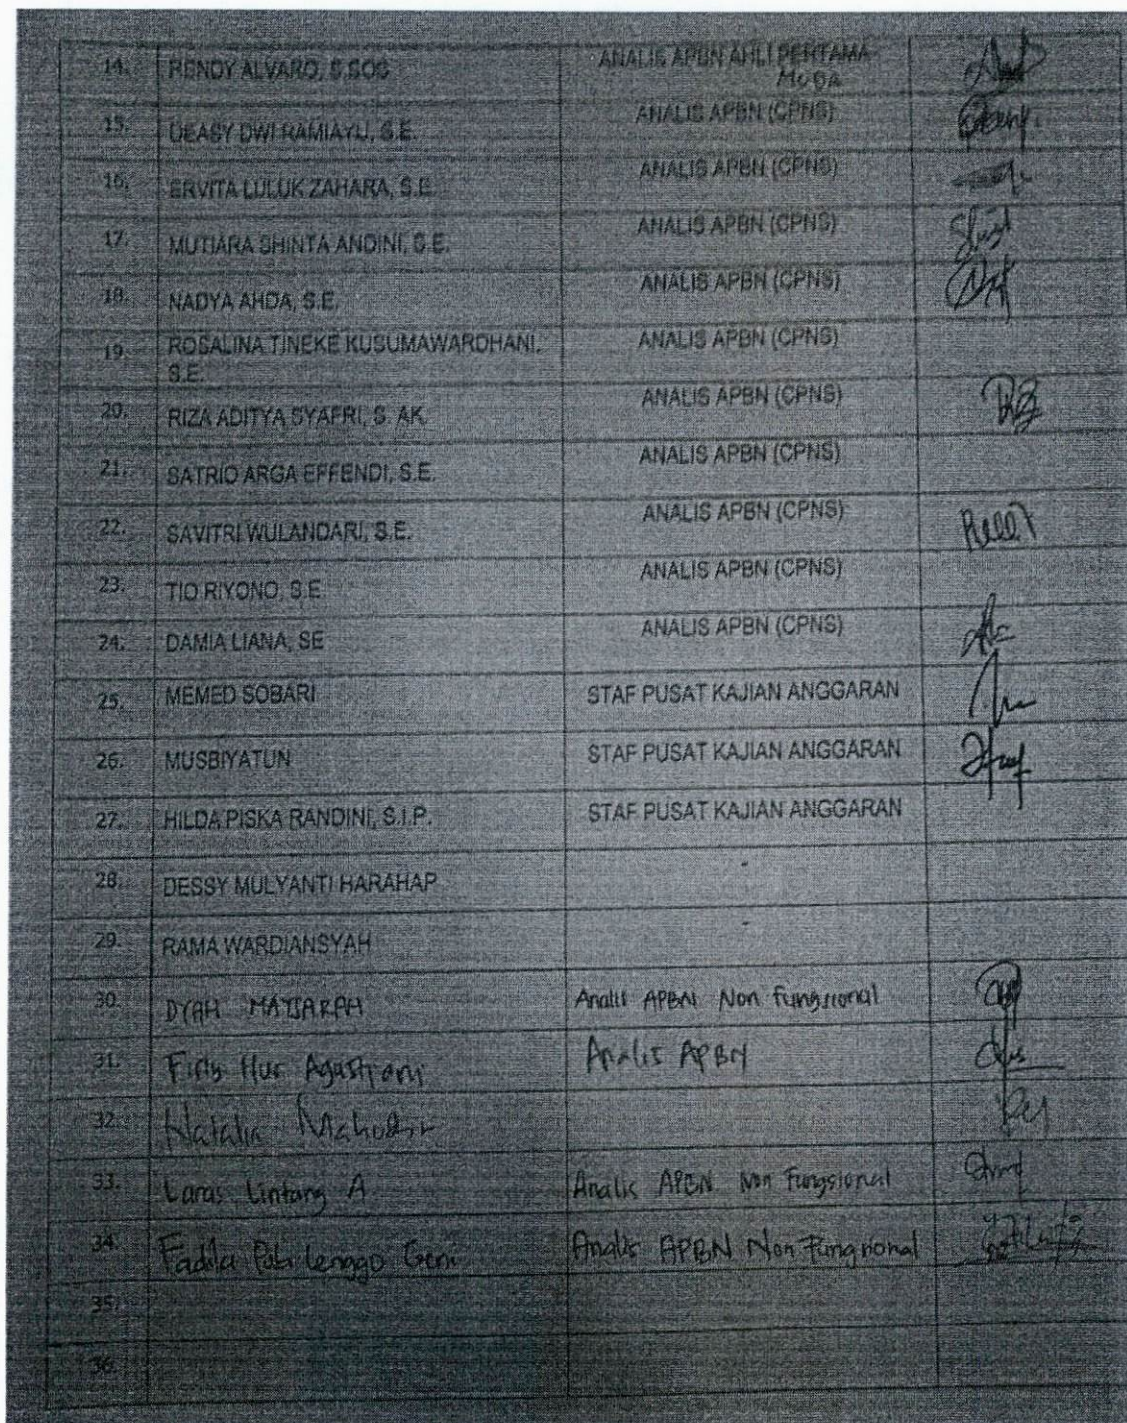 14. RENDY ALVARO, S.SOS ANALIS APBN AHLI PERTAMA
MUDA
15. DEASY DWI RAMIAYU, S.E. ANALIS APBN (CPNS)
16. ERVITA LULUK ZAHARA, S.E. ANALIS APBN (CPNS)
17. MUTIARA SHINTA ANDINI, S.E. ANALIS APBN (CPNS)
18. NADYA AHDA, S.E. ANALIS APBN (CPNS)
19. ROSALINA TINEKE KUSUMAWARDHANI, ANALIS APBN (CPNS)
S.E.
20. RIZA ADITYA SYAFRI, S. AK. ANALIS APBN (CPNS)
21. SATRIO ARGA EFFENDI, S.E. ANALIS APBN (CPNS)
22. SAVITRI WULANDARI, S.E. ANALIS APBN (CPNS)
23. TIO RIYONO, S.E. ANALIS APBN (CPNS)
24. DAMIA LIANA, SE ANALIS APBN (CPNS)
25. MEMED SOBARI STAF PUSAT KAJIAN ANGGARAN
26. MUSBIYATUN STAF PUSAT KAJIAN ANGGARAN
27. HILDA PISKA RANDINI, S.I.P. STAF PUSAT KAJIAN ANGGARAN
28. DESSY MULYANTI HARAHAP
29. RAMA WARDIANSYAH
30. DYAH Analis APBN Non Fungsional
31. Firly Nur Agustiani Analis APBN
32. Natalia
33. Laras Lintang A Analis APBN Non Fungsional
34. Fadila Lenggo Geni Analis APBN Non Fungsional
35.
36.